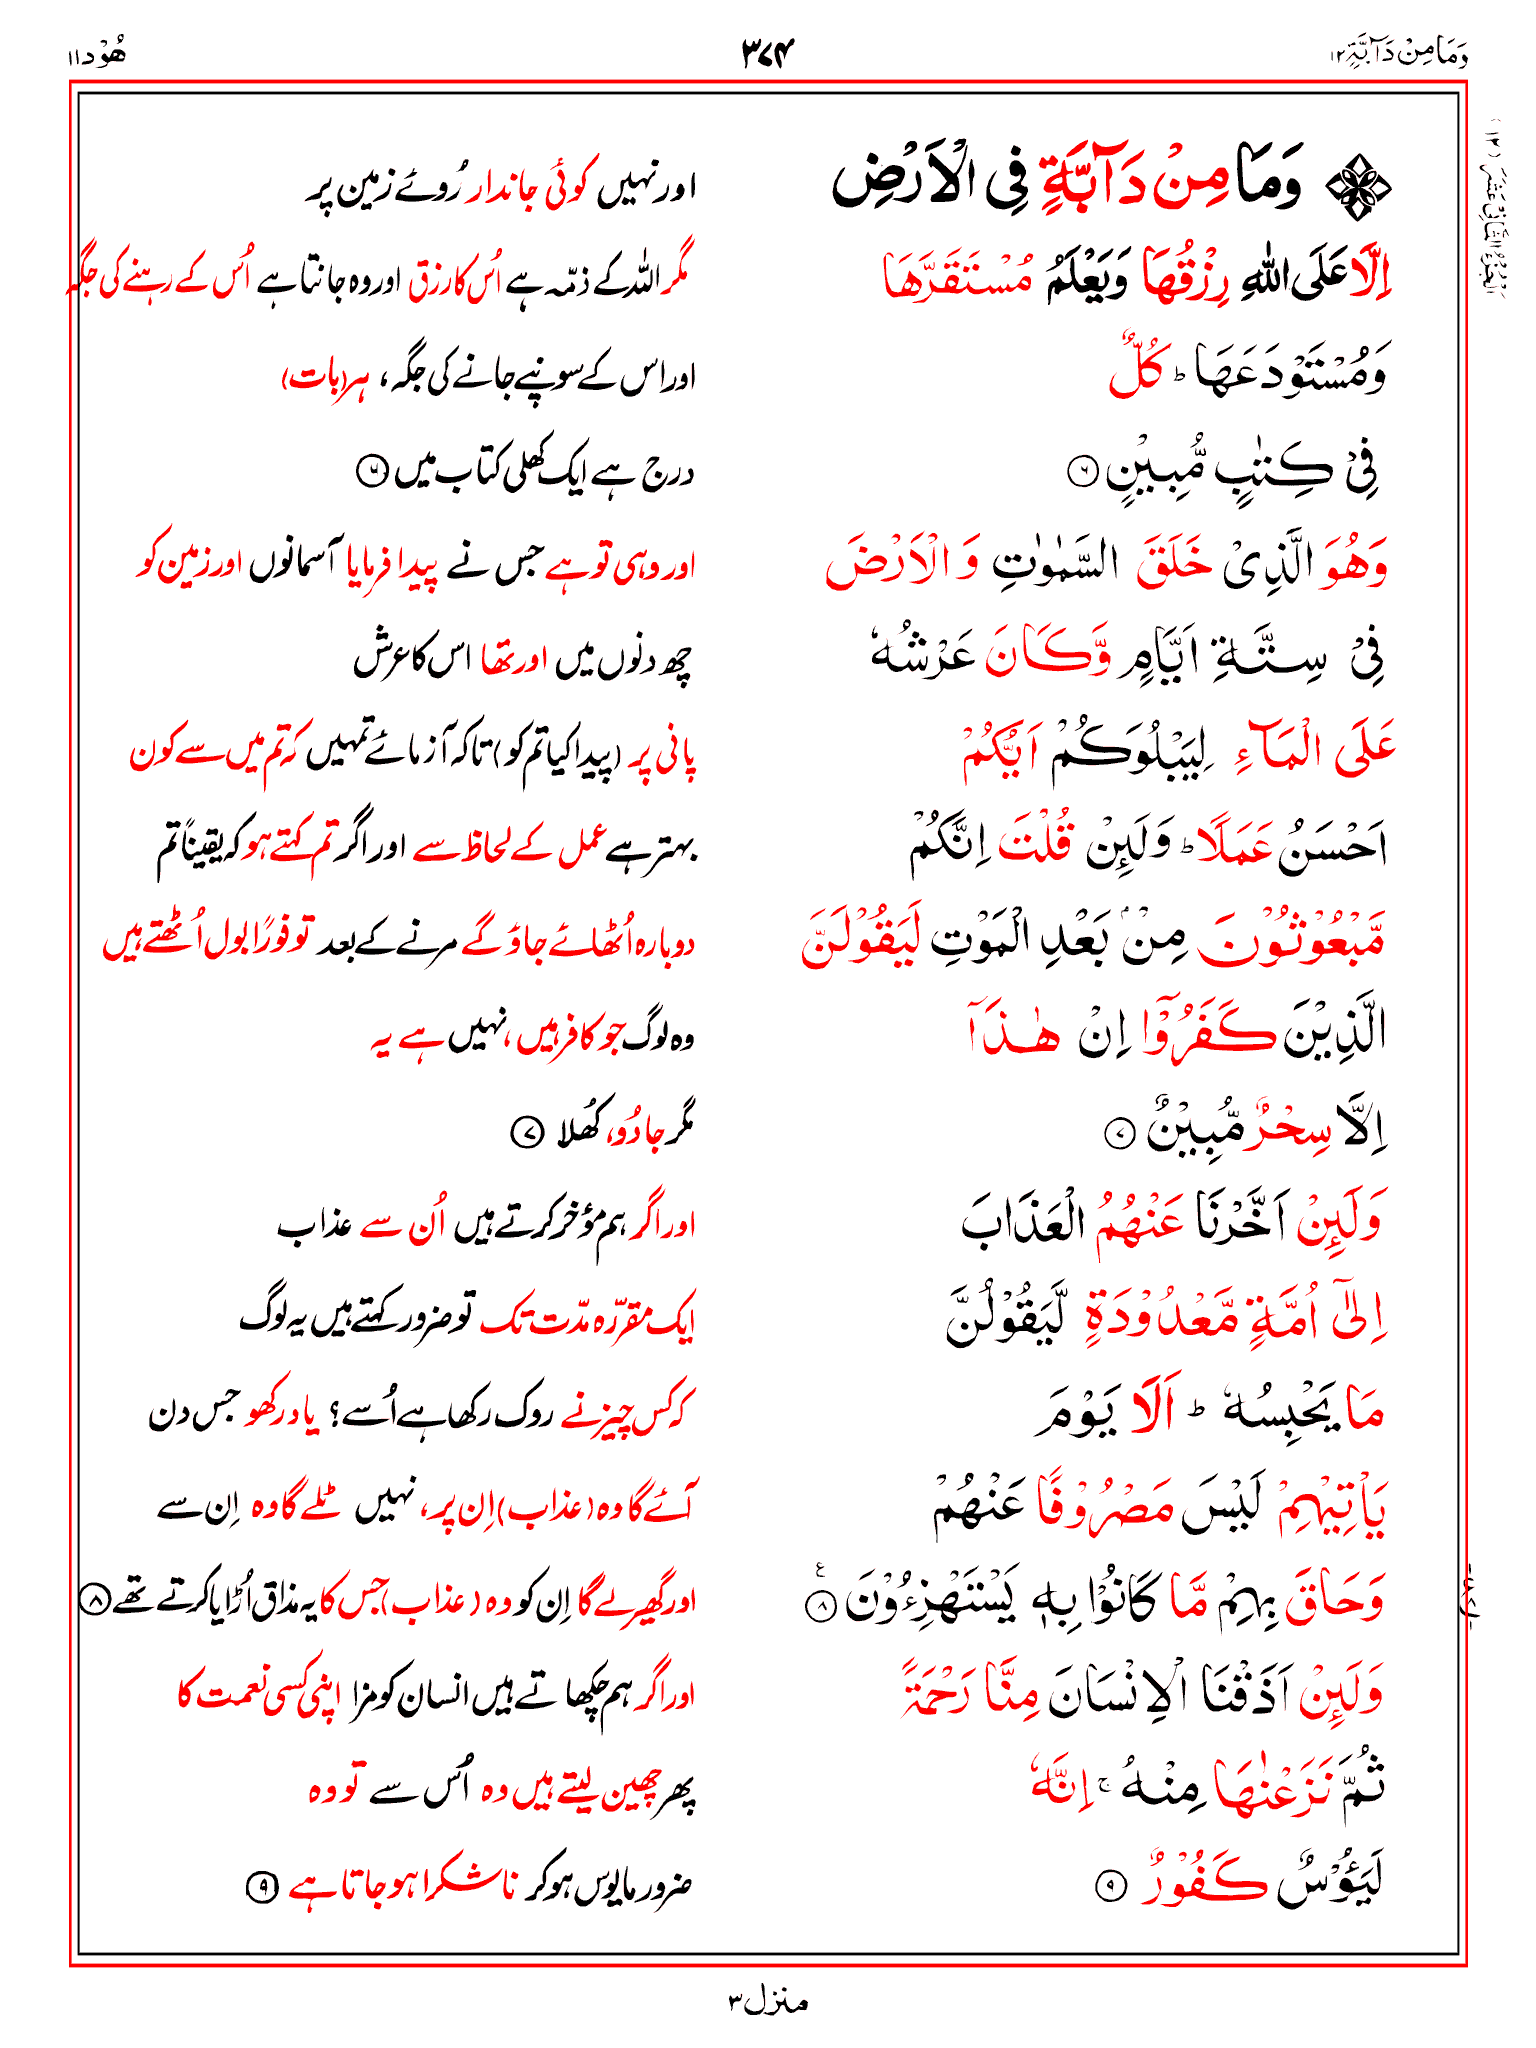 وَمَا مِنْ دَآبَّةٍ ١٢
٣٧٤
هُوْد ١١
اَلْجُزْءُ الثَّانِیْ عَشَرَ (١٢)
وَمَا مِنْ دَآبَّةٍ فِی الْاَرْضِ
اور نہیں کوئی جاندار رُوئے زمین پر
اِلَّا عَلَی اللّٰهِ رِزْقُهَا وَیَعْلَمُ مُسْتَقَرَّهَا
مگر اللہ کے ذمّہ ہے اُس کا رزق اور وہ جانتا ہے اُس کے رہنے کی جگہ
وَمُسْتَوْدَعَهَا ؕ كُلٌّ
اور اس کے سونپے جانے کی جگہ، ہر (بات)
فِیْ كِتٰبٍ مُّبِیْنٍ ۶
درج ہے ایک کھلی کتاب میں ۶
وَهُوَ الَّذِیْ خَلَقَ السَّمٰوٰتِ وَ الْاَرْضَ
اور وہی تو ہے جس نے پیدا فرمایا آسمانوں اور زمین کو
فِیْ سِتَّةِ اَیَّامٍ وَّكَانَ عَرْشُهٗ
چھ دنوں میں اور تھا اس کا عرش
عَلَی الْمَآءِ لِیَبْلُوَكُمْ اَیُّكُمْ
پانی پر (پیدا کیا تم کو) تاکہ آزمائے تمہیں کہ تم میں سے کون
اَحْسَنُ عَمَلًا ؕ وَلَىِٕنْ قُلْتَ اِنَّكُمْ
بہتر ہے عمل کے لحاظ سے اور اگر تم کہتے ہو کہ یقیناً تم
مَّبْعُوْثُوْنَ مِنْۢ بَعْدِ الْمَوْتِ لَیَقُوْلَنَّ
دوبارہ اُٹھائے جاؤ گے مرنے کے بعد تو فورًا بول اُٹھتے ہیں
الَّذِیْنَ كَفَرُوْۤا اِنْ هٰذَاۤ
وہ لوگ جو کافر ہیں، نہیں ہے یہ
اِلَّا سِحْرٌ مُّبِیْنٌ ۷
مگر جادُو، کُھلا ۷
وَلَىِٕنْ اَخَّرْنَا عَنْهُمُ الْعَذَابَ
اور اگر ہم مؤخر کرتے ہیں اُن سے عذاب
اِلٰۤی اُمَّةٍ مَّعْدُوْدَةٍ لَّیَقُوْلُنَّ
ایک مقررّہ مدّت تک تو ضرور کہتے ہیں یہ لوگ
مَا یَحْبِسُهٗ ؕ اَلَا یَوْمَ
کہ کس چیز نے روک رکھا ہے اُسے؟ یاد رکھو جس دن
یَاْتِیْهِمْ لَیْسَ مَصْرُوْفًا عَنْهُمْ
آئے گا وہ (عذاب) اِن پر، نہیں ٹلے گا وہ اِن سے
وَحَاقَ بِهِمْ مَّا كَانُوْا بِهٖ یَسْتَهْزِءُوْنَ ۸ ع
اور گھیر لے گا اِن کو وہ (عذاب) جس کا یہ مذاق اُڑایا کرتے تھے ۸
وَلَىِٕنْ اَذَقْنَا الْاِنْسَانَ مِنَّا رَحْمَةً
اور اگر ہم چکھاتے ہیں انسان کو مزا اپنی کسی نعمت کا
ثُمَّ نَزَعْنٰهَا مِنْهُ ۚ اِنَّهٗ
پھر چھین لیتے ہیں وہ اُس سے تو وہ
لَیَـُٔوْسٌ كَفُوْرٌ ۹
ضرور مایوس ہو کر ناشکرا ہو جاتا ہے ۹
منزل ٣